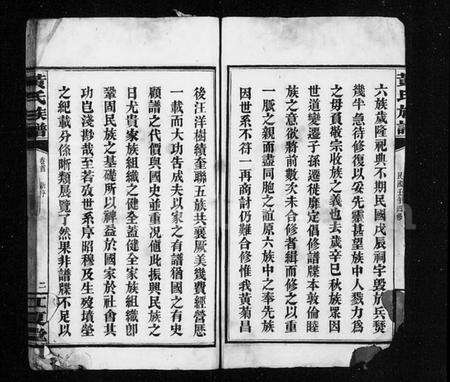 黃氏族譜
六族歲隆祀典不期民國戊辰祠宇毀於兵燹
幾半急待修復以妥先靈甚望族中人戮力爲
之毋負敬宗收族之義也去歲辛巳秋族眾因
世道變遷子孫遷徙靡定倡修譜牒本敦倫睦
族之意欲將前數次未合修者緝而修之以重
一脈之親而盡同胞之誼原六族中之奉先族
因世系不符一再商討仍難合修惟我黃菊昌
後汪洋樹績奎聯五族共襄厥美幾費經營厯
一載而大功告成夫以家之有譜猶國之有史
顧譜之代價與國史並重況值此振興民族之
日尤貴家族組織之健全蓋健全家族組織卽
鞏固民族之基礎所以裨益於國家於社會其
功豈淺尠哉至若攷世系序昭穆及生歿墳塋
之紀載分條晰類展覽了然果非譜牒不足以
黃氏族譜
卷首
二
江夏堂